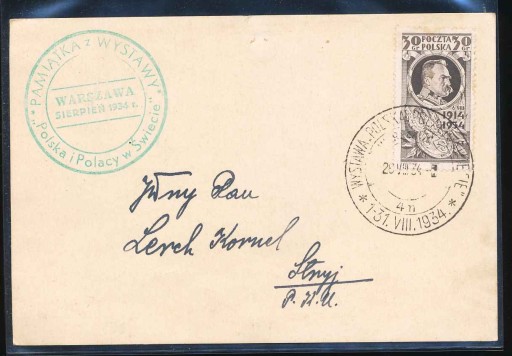 "PAMIĄTKA z WYSTAWY"
WARSZAWA
SIERPIEŃ 1934 r.
"Polska i Polacy w Świecie"
30 POCZTA 30
GR. POLSKA GR.
6 VIII
1914
1934
WYSTAWA "POLSKA
29 VIII 34
4 n
* 1-31. VIII. 1934. *
Wny Pan
Lerch Kornel
Stryj
P. K. U.